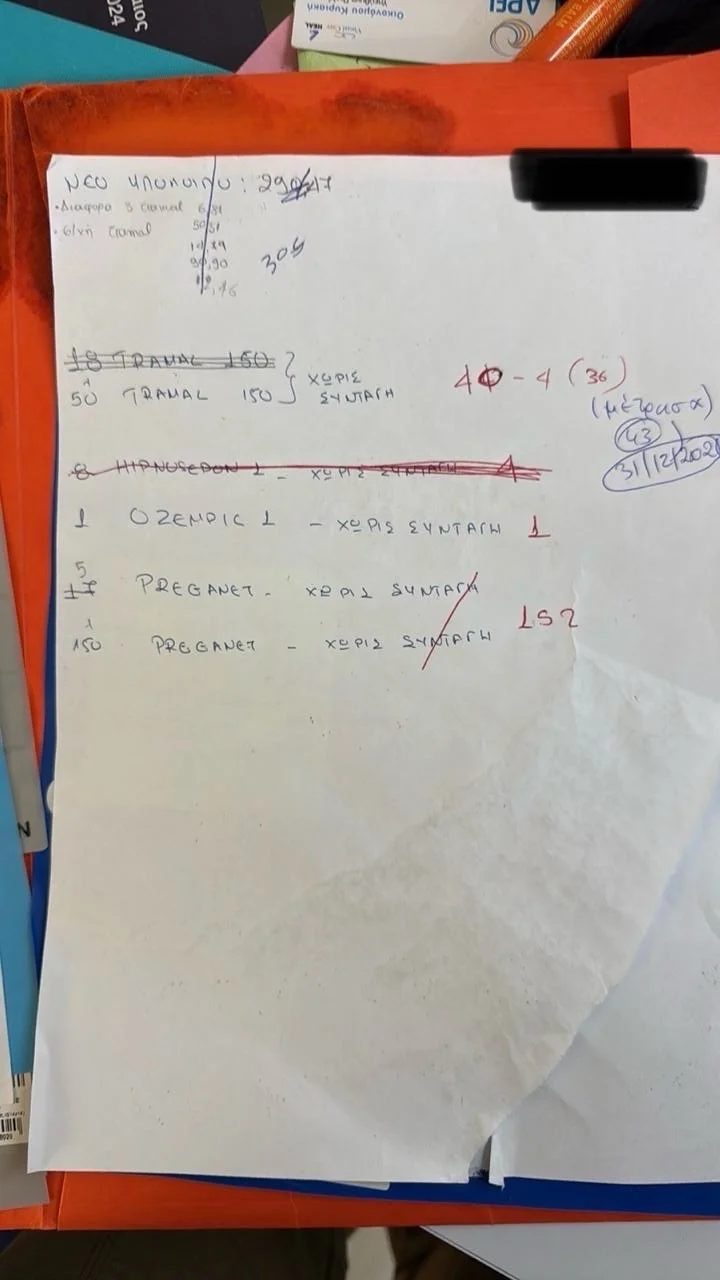 ΙΟΣ
024
Οικονόμου Κυριακή
ΝΕΟ ΥΠΟΛΟΙΠΟ: 17
• Διαφορα 3 tramal 6,81
• 6/νη tramal 50,51
90,90
304
18 TRAMAL 150
50 TRAMAL 150 ΧΩΡΙΣ ΣΥΝΤΑΓΗ 40 - 4 (36)
(μέτρησα)
43
31/12/202
8 HIPNOSEDON 1 - ΧΩΡΙΣ ΣΥΝΤΑΓΗ 4
1 OZEMPIC 1 - ΧΩΡΙΣ ΣΥΝΤΑΓΗ 1
5
17 PREGANET - ΧΩΡΙΣ ΣΥΝΤΑΓΗ
152
150 PREGANET - ΧΩΡΙΣ ΣΥΝΤΑΓΗ
N